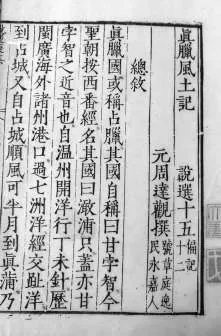 眞臘風土記 說選十五 偏記十二
元周達觀撰 號草庭逸民永嘉人
總敘
眞臘國或稱占臘其國自稱曰甘孛智今
聖朝按西番經名其國曰澉浦只蓋亦甘
孛智之近音也自温州開洋行丁未針歷
閩廣海外諸州港口過七洲洋經交趾洋
到占城又自占城順風可半月到眞蒲乃